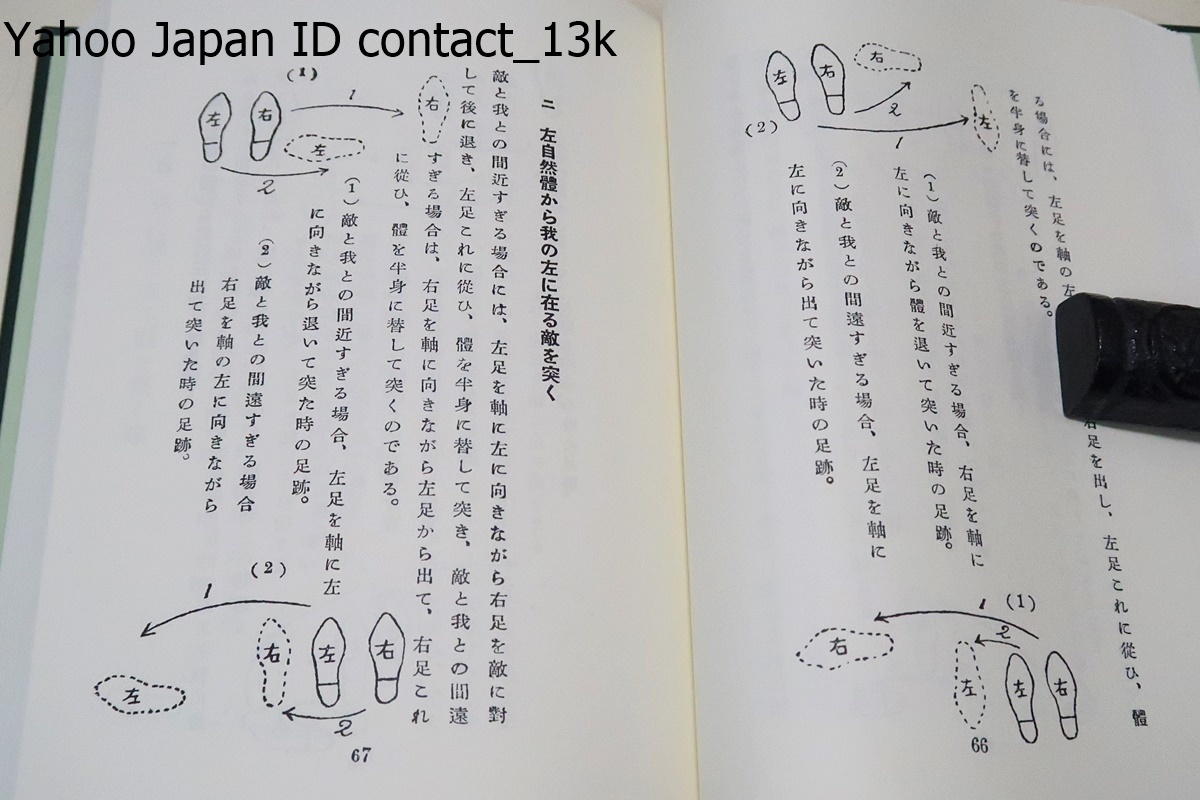 Yahoo Japan ID contact_13k
る場合には、左足を軸の左
右足を出し、左足これに從ひ、體
を半身に替して突くのである。
(1)
1
2
左
右
左
右
(2)
1
2
左
右
右
左
(1)敵と我との間近すぎる場合、右足を軸に
左に向きながら體を退いて突いた時の足跡。
(2)敵と我との間遠すぎる場合、左足を軸に
左に向きながら出て突いた時の足跡。
66
二 左自然體から我の左に在る敵を突く
敵と我との間近すぎる場合には、左足を軸に左に向きながら右足を敵に對
して後に退き、左足これに從ひ、體を半身に替して突き、敵と我との間遠
すぎる場合は、右足を軸に向きながら左足から出て、右足これ
に從ひ、體を半身に替して突くのである。
(1)
1
2
左
右
右
左
(1)敵と我との間近すぎる場合、左足を軸に左
に向きながら退いて突た時の足跡。
(2)敵と我との間遠すぎる場合
右足を軸の左に向きながら
出て突いた時の足跡。
(2)
1
2
右
左
右
左
67